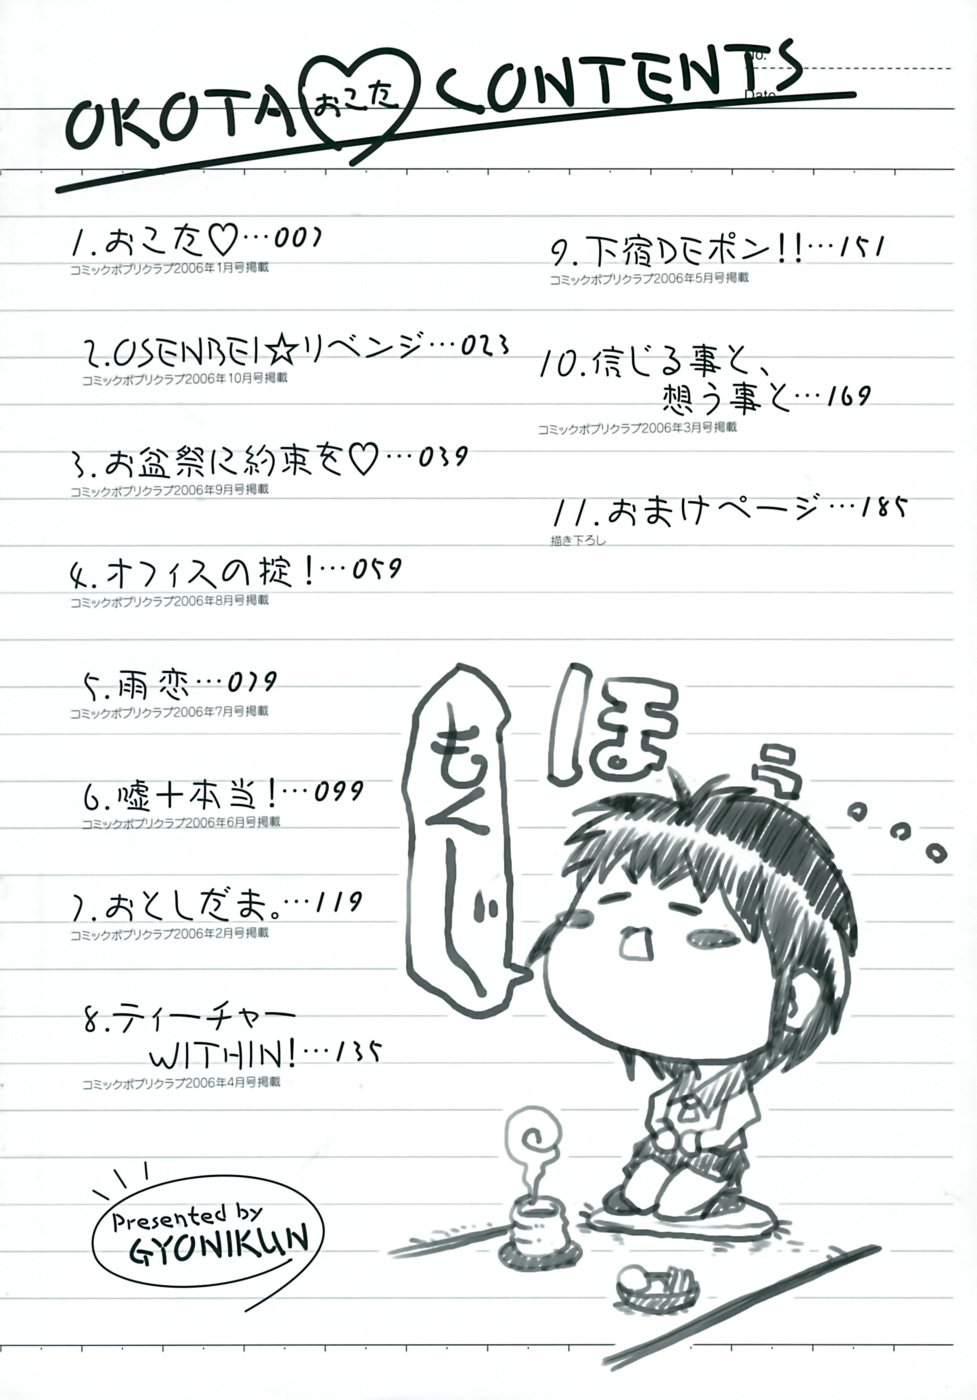 No.
Date
OKOTA おこた CONTENTS
1.おこた♡…007
コミックポプリクラブ2006年1月号掲載
2.OSENBEI☆リベンジ…023
コミックポプリクラブ2006年10月号掲載
3.お盆祭に約束を♡…039
コミックポプリクラブ2006年9月号掲載
4.オフィスの掟!…059
コミックポプリクラブ2006年8月号掲載
5.雨恋…079
コミックポプリクラブ2006年7月号掲載
6.嘘+本当!…099
コミックポプリクラブ2006年6月号掲載
7.おとしだま。…119
コミックポプリクラブ2006年2月号掲載
8.ティーチャー
WITHIN!…135
コミックポプリクラブ2006年4月号掲載
9.下宿DEポン!!…151
コミックポプリクラブ2006年5月号掲載
10.信じる事と、
想う事と…169
コミックポプリクラブ2006年3月号掲載
11.おまけページ…185
描き下ろし
ほぅ...
もくーじ
Presented by
GYONIKUN